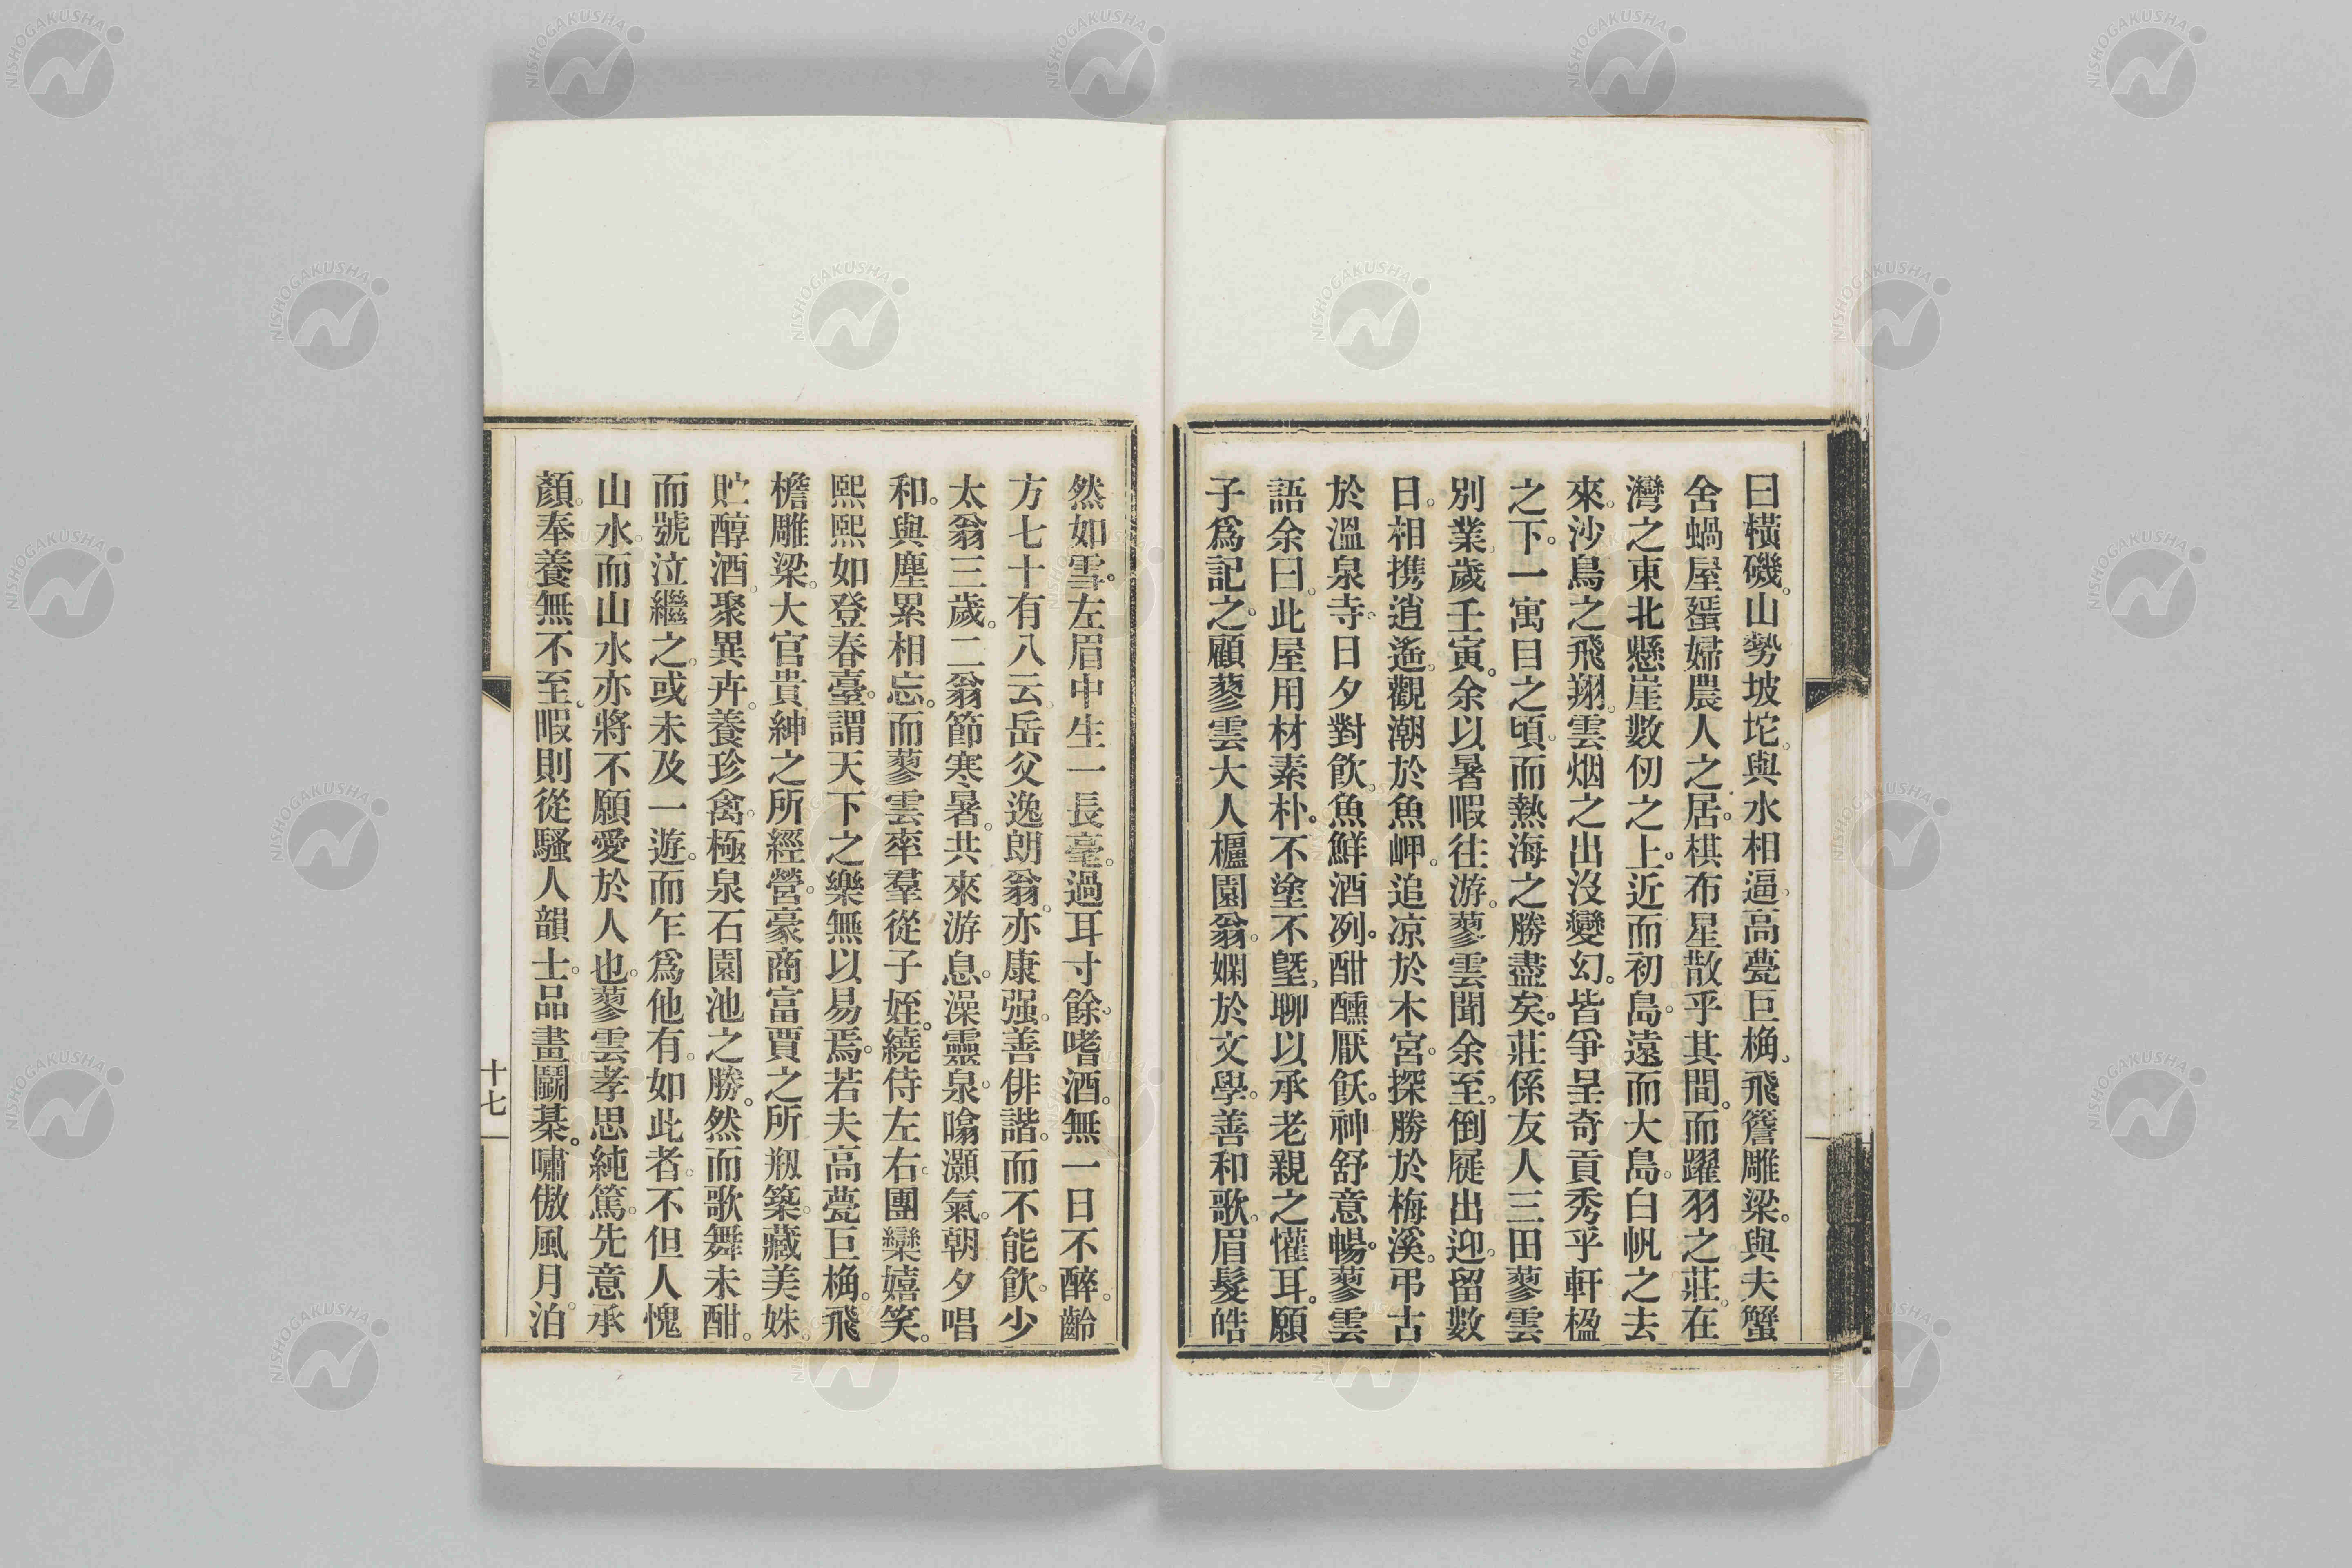 曰橫磯。山勢坡坨。與水相逼。高甍巨桷。飛簷雕梁。與夫蟹
舍蝸屋。蜑婦農人之居。棋布星散乎其間。而躍羽之莊。在
灣之東北懸崖數仞之上。近而初島。遠而大島。白帆之去
來。沙鳥之飛翔。雲烟之出沒變幻。皆爭呈奇貢秀乎軒楹
之下。一寓目之頃。而熱海之勝盡矣。莊係友人三田蓼雲
別業。歲壬寅。余以暑暇往游。蓼雲聞余至。倒屣出迎。留數
日。相携逍遙。觀潮於魚岬。追凉於木宮。探勝於梅溪。弔古
於溫泉寺。日夕對飮。魚鮮酒冽。酣醺厭飫。神舒意暢。蓼雲
語余曰。此屋用材素朴。不塗不墍。聊以承老親之懽耳。願
子爲記之。顧蓼雲大人櫃園翁。嫻於文學。善和歌。眉髮皓
然如雪。左眉中生一長毫。過耳寸餘。嗜酒。無一日不醉。齡
方七十有八云。岳父逸朗翁。亦康强。善俳諧。而不能飮。少
太翁三歲。二翁節寒暑。共來游息。澡靈泉。噏灝氣。朝夕唱
和。與塵累相忘。而蓼雲率羣從子姪。繞侍左右。團欒嬉笑。
熙熙如登春臺。謂天下之樂無以易焉。若夫高甍巨桷。飛
檐雕梁。大官貴紳之所經營。豪商富賈之所剏築。藏美姝。
貯醇酒。聚異卉。養珍禽。極泉石園池之勝。然而歌舞未酣。
而號泣繼之。或未及一遊。而乍爲他有。如此者。不但人愧
山水。而山水亦將不願愛於人也。蓼雲孝思純篤。先意承
顏。奉養無不至。暇則從騷人韻士。品畫鬭棊。嘯傲風月。泊
十七
NISHOGAKUSHA